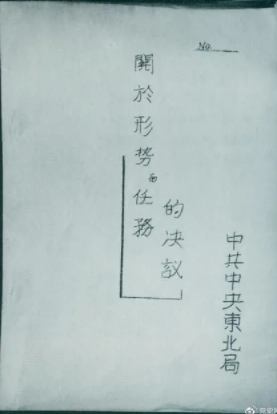 No.
關於形势和任務
的决议
中共中央東北局